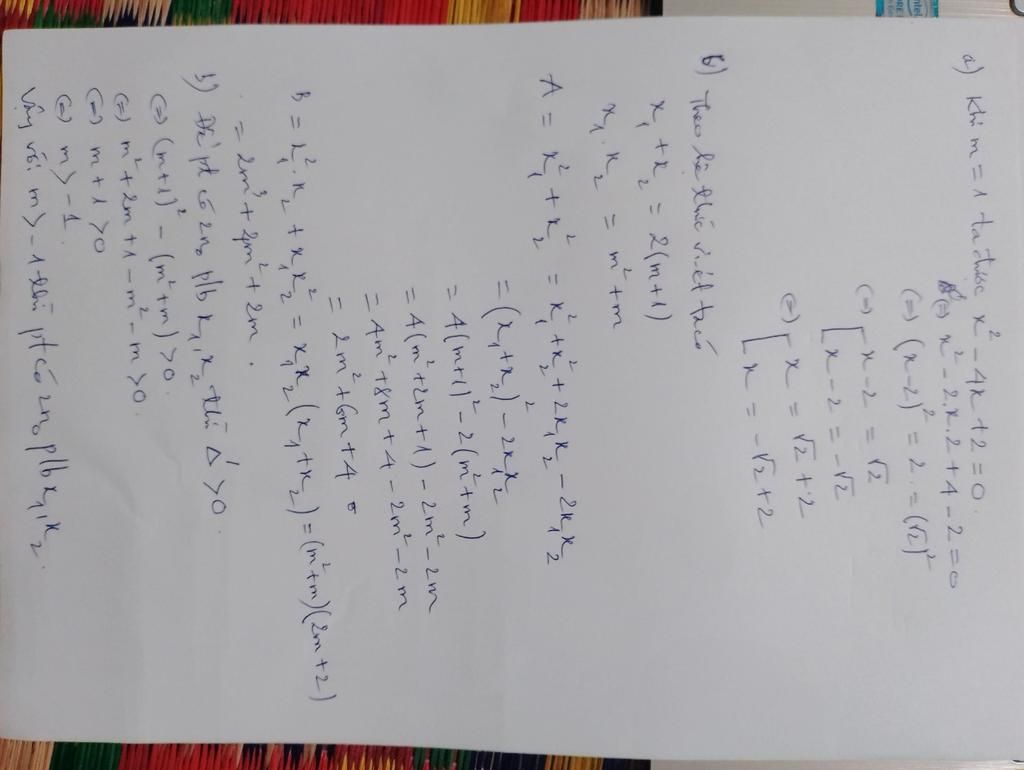 a) Khi m = 1 ta được x² - 4x + 2 = 0.
(=) x² - 2.x.2 + 4 - 2 = 0
(=) (x-2)² = 2 = (√2)²
(=) [ x - 2 = √2
[ x - 2 = -√2
(=) [ x = √2 + 2
[ x = -√2 + 2
b) Theo hệ thức viét ta có
x₁ + x₂ = 2(m+1)
x₁ . x₂ = m² + m
A = x₁² + x₂² = x₁² + x₂² + 2x₁x₂ - 2x₁x₂
= (x₁ + x₂)² - 2x₁x₂
= 4(m+1)² - 2(m²+m)
= 4(m² + 2m + 1) - 2m² - 2m
= 4m² + 8m + 4 - 2m² - 2m
= 2m² + 6m + 4
B = x₁².x₂ + x₁x₂² = x₁x₂(x₁ + x₂) = (m²+m)(2m+2)
= 2m³ + 4m² + 2m.
b) Để pt có 2no p/b x₁, x₂ thì Δ' > 0.
(=) (m+1)² - (m²+m) > 0.
(=) m² + 2m + 1 - m² - m > 0.
(=) m + 1 > 0
(=) m > -1.
Vậy với m > -1 thì pt có 2no p/b x₁, x₂.
intel